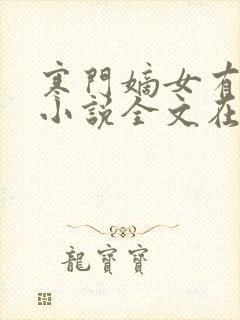 寒門嫡女有
小說全文在
龍寶寶